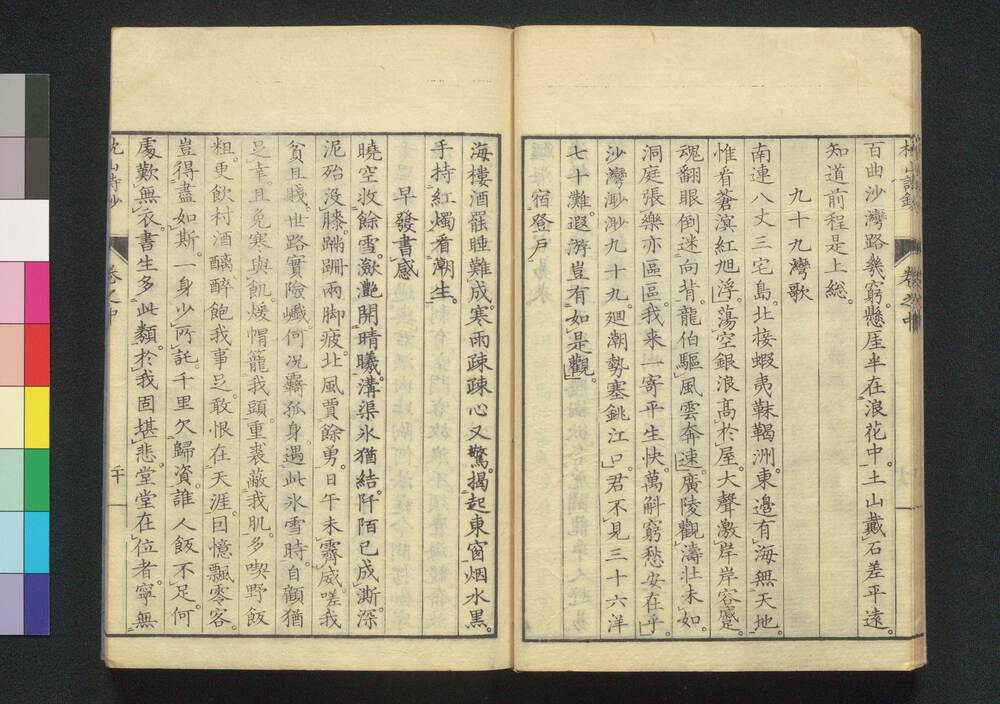 百曲沙灣路幾窮。懸厓半在浪花中。土山戴石差平遠。
知道前程是上総。
九十九灣歌
南連八丈三宅島。北接蝦夷靺鞨洲。東邊有海無天地。
惟看蒼溟紅旭浮。蕩空銀浪髙於屋。大聲激岸岸容蹙。
魂翻眼倒迷向背。龍伯驅風雲奔速。廣陵觀濤壮未如。
洞庭張樂亦區區。我来一寄平生快。萬斛窮愁安在乎。
沙灣渺渺九十九。廻潮勢塞銚江口。君不見三十六洋
七十灘。遐游豈有如是觀。
宿登戶
海樓酒罷睡難成。寒雨疎疎心又驚。揭起東窗烟水黒。
手持紅燭看潮生。
早發書感
曉空收餘雪。瀲灔開晴曦。溝渠氷猶結。阡陌已成澌。深
泥殆没膝。蹣跚兩脚疲。北風賈餘勇。日午未霽威。嗟我
貧且賤。世路實險巇。何况羇孤身。遇此氷雪時。自顧猶
足幸。且免寒與飢。煖帽籠我頭。重裘蔽我肌。多喫野飯
粗。更飲村酒醨。醉飽我事足。敢恨在天涯。囙憶飄零客
豈得盡如斯。一身少所託。千里欠歸資。誰人飯不足。何
處歎無衣。書生多此類。於我固堪悲。堂堂在位者。寧無
枕山詩鈔
卷之中
二十